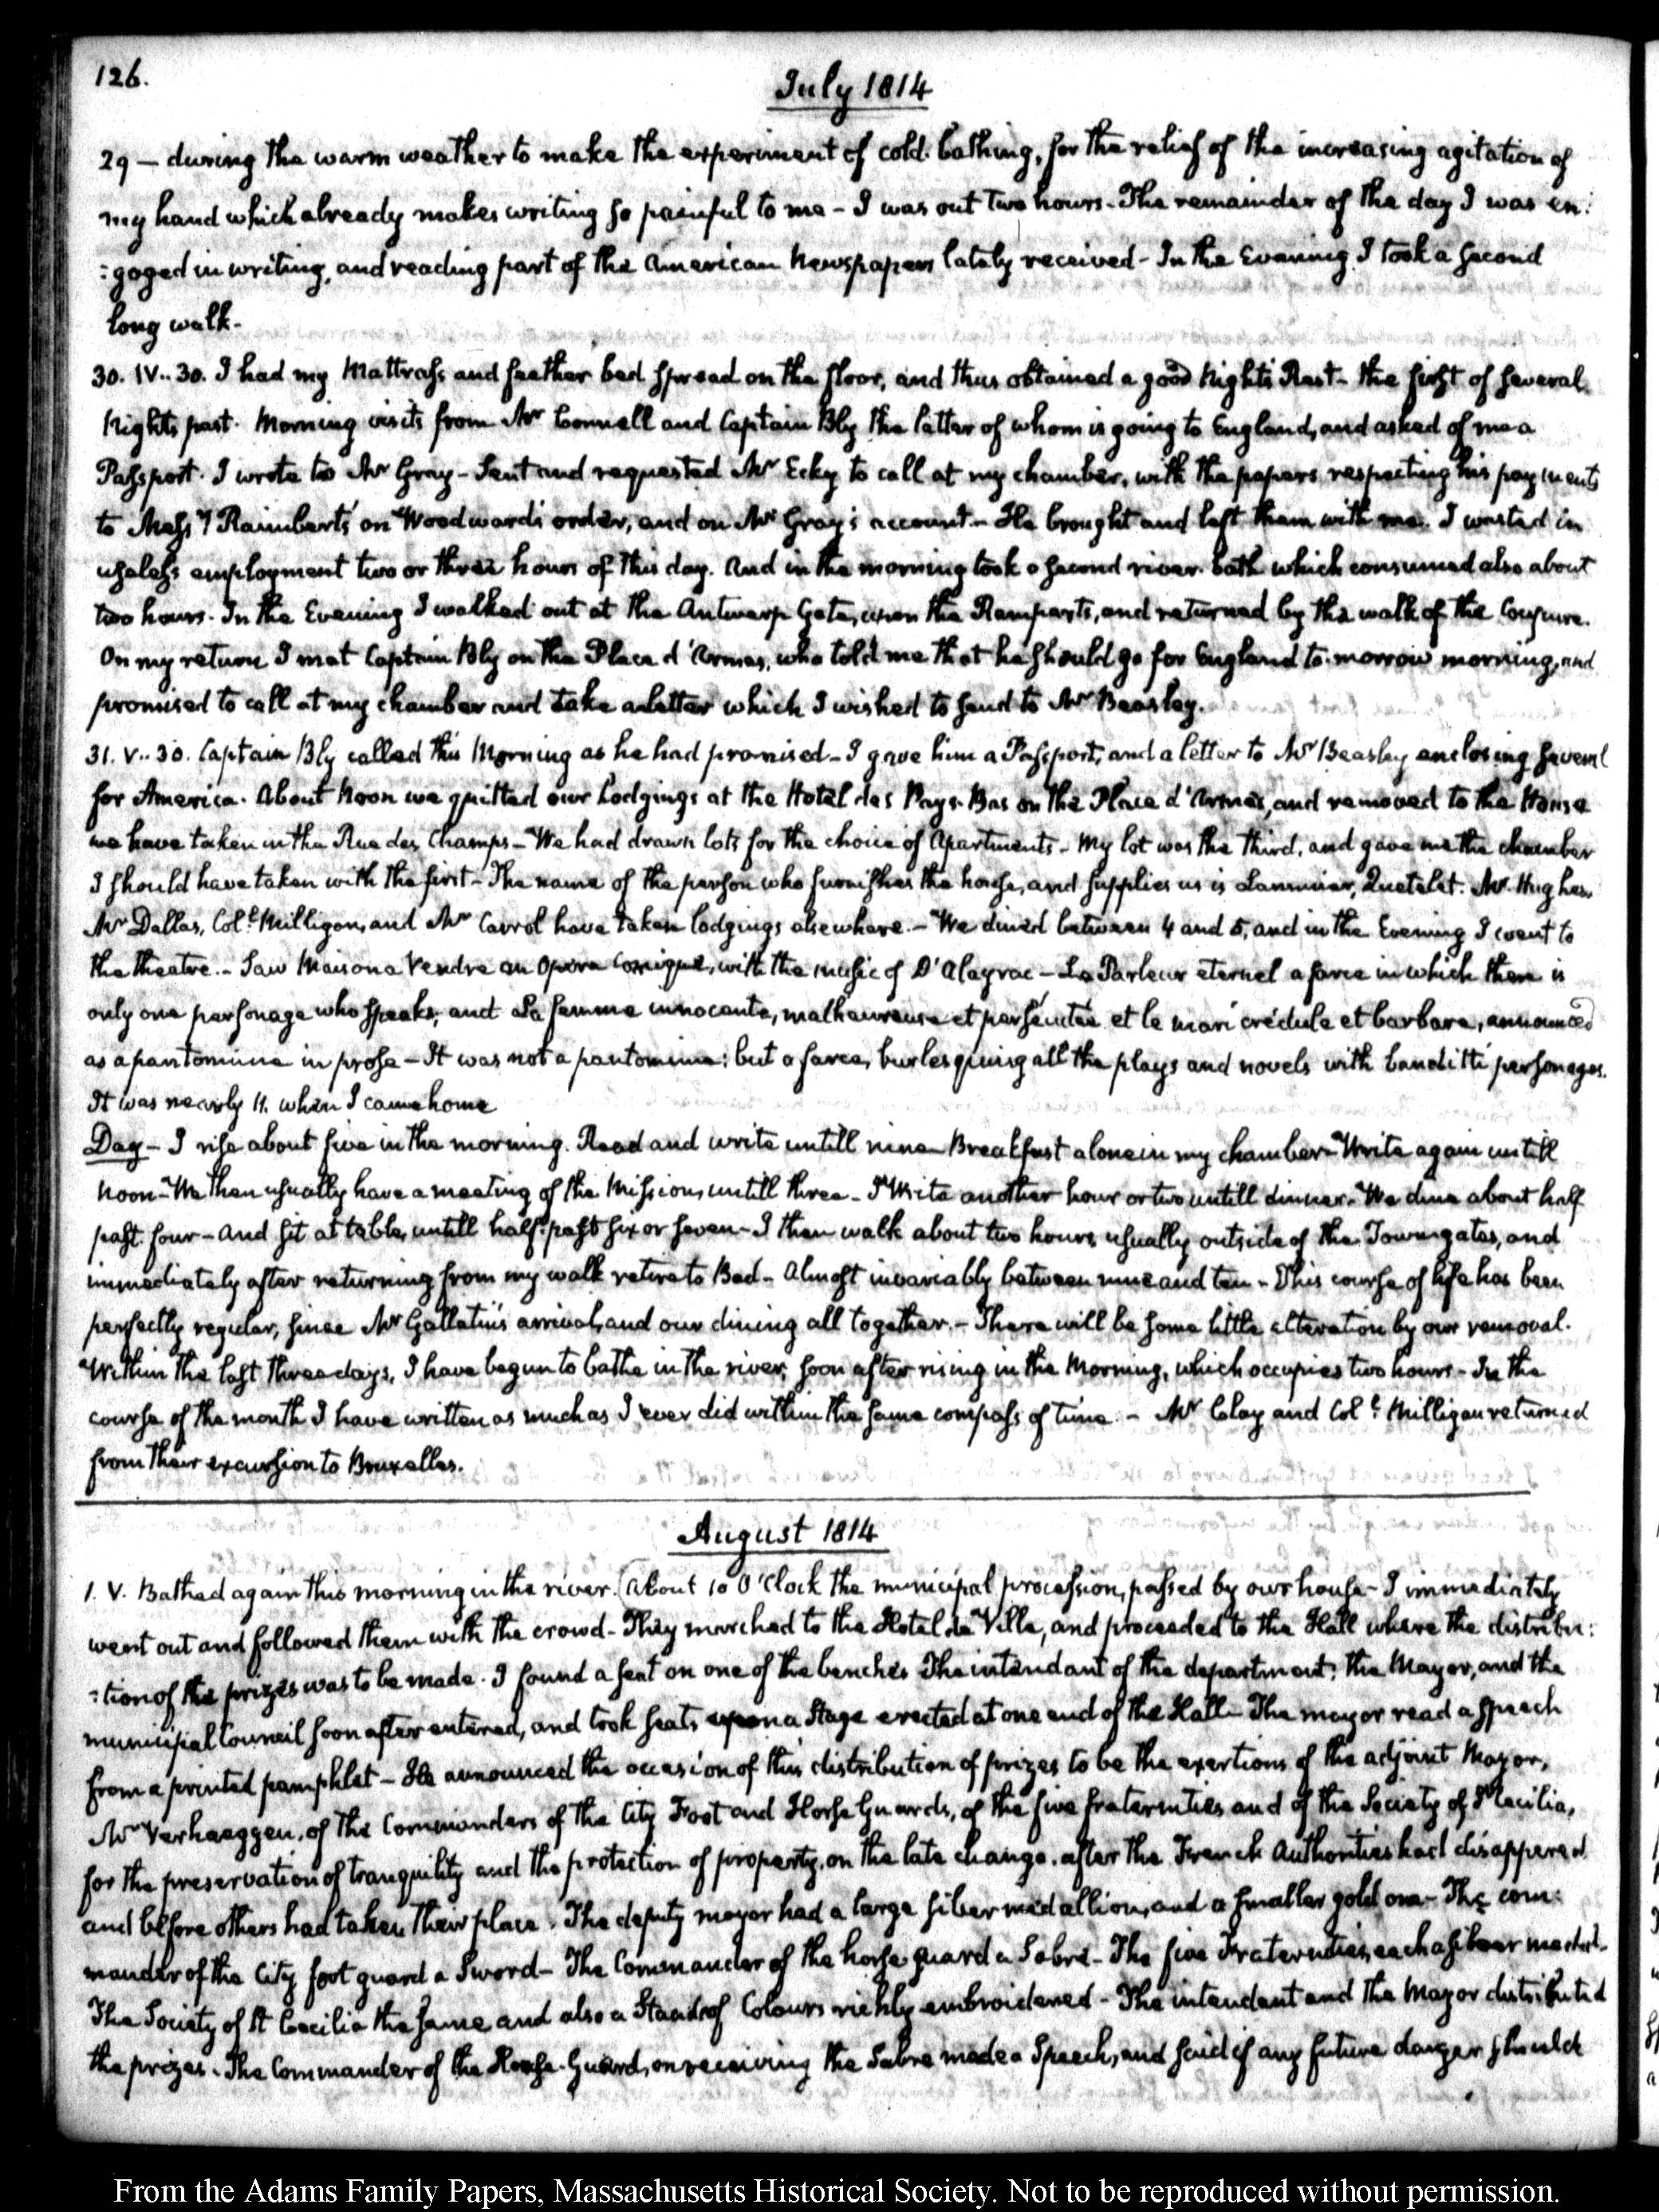 126.
July 1814
29 — during the warm weather to make the experiment of cold bathing, for the relief of the increasing agitation of
my hand which already makes writing so painful to me - I was out two hours - The remainder of the day I was en:
:gaged in writing, and reading part of the American Newspapers lately received - In the Evening I took a second
long walk.
30. IV.. 30. I had my Mattrass and feather bed spread on the floor, and thus obtained a good Night's Rest - the first of several
Nights past. Morning visits from Mr Connell and Captain Bly the latter of whom is going to England, and asked of me a
Passport. I wrote to Mr Gray - Sent and requested Mr Ecky to call at my chamber, with the papers respecting his payments
to Messrs Raimberts' on Woodward's order, and on Mr Gray's account - He brought and left them with me. I wasted in
useless employment two or three hours of this day. And in the morning took a second river bath which consumed also about
two hours. In the Evening I walked out at the Antwerp Gate, upon the Ramparts, and returned by the walk of the Coupure.
On my return I met Captain Bly on the Place d'Armes, who told me that he should go for England to-morrow morning, and
promised to call at my chamber and take a letter which I wished to send to Mr Beasley.
31. V.. 30. Captain Bly called this Morning as he had promised - I gave him a Passport, and a letter to Mr Beasley enclosing several
for America. About Noon we quitted our Lodgings at the Hotel des Pays-Bas on the Place d'Armes, and removed to the House
we have taken in the Rue des Champs - We had drawn lots for the choice of Apartments - My lot was the third, and gave me the chamber
I should have taken with the first - The name of the person who furnishes the house, and supplies us is Lannuier, Quetelet. Mr Hughes
Mr Dallas, Coll. Milligan, and Mr Carrol have taken lodgings elsewhere. - We dined between 4 and 5, and in the Evening I went to
the theatre. - Saw Maison a Vendre an Opera Comique, with the music of D'Alayrac - Le Parleur eternel a farce in which there is
only one personage who speaks, and La femme innocente, malheureuse et persécutée et le mari crédule et barbare, announced
as a pantomime in prose - It was not a pantomime: but a farce, burlesquing all the plays and novels with banditti personages.
It was nearly 11. when I came home
Day - I rise about five in the morning. Read and write untill nine - Breakfast alone in my chamber - Write again untill
Noon - We then usually have a meeting of the Mission, untill three - I Write another hour or two untill dinner - We dine about half
past four - and sit at table, untill half-past six or seven - I then walk about two hours usually outside of the Town-gates, and
immediately after returning from my walk retire to Bed - Almost invariably between nine and ten - This course of life has been
perfectly regular, since Mr Gallatin's arrival, and our dining all together. - There will be some little alteration by our removal.
Within the last three days, I have begun to bathe in the river, soon after rising in the Morning, which occupies two hours - In the
course of the month I have written as much as I ever did within the same compass of time. - Mr Clay and Coll. Milligan returned
from their excursion to Bruxelles.
August 1814
1. V. Bathed again this morning in the river. About 10 O'Clock the municipal procession, passed by our house - I immediately
went out and followed them with the crowd - They marched to the Hotel de Ville, and proceeded to the Hall where the distribu:
:tion of the prizes was to be made. I found a seat on one of the benches The intendant of the department, the Mayor, and the
municipal Council soon after entered, and took seats upon a Stage erected at one end of the Hall - The mayor read a speech
from a printed pamphlet - He announced the occasion of this distribution of prizes to be the exertions of the adjoint Mayor,
Mr Verhaeggen, of the Commanders of the City Foot and Horse Guards, of the five fraternities and of the Society of St Cecilia,
for the preservation of tranquility and the protection of property, on the late change, after the French Authorities had disappeared
and before others had taken their place. The deputy mayor had a large silver medallion, and a smaller gold one - The com:
mander of the City foot guard a Sword - The Commander of the horse guard a Sabre - The five Fraternities, each a silver medal.
The Society of St Cecilia the same and also a Stand of Colours richly embroidered - The intendant and the Mayor distributed
the prizes. The Commander of the Horse-Guard, on receiving the Sabre made a Speech, and said if any future danger should
From the Adams Family Papers, Massachusetts Historical Society. Not to be reproduced without permission.